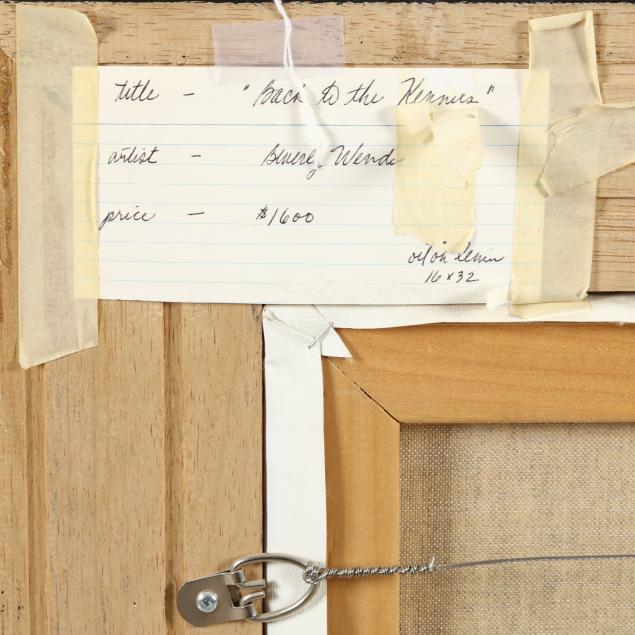 title - "Back to the Kennels"
artist - Beverly Wende
price - $1600
oil on Linin
16 x 32